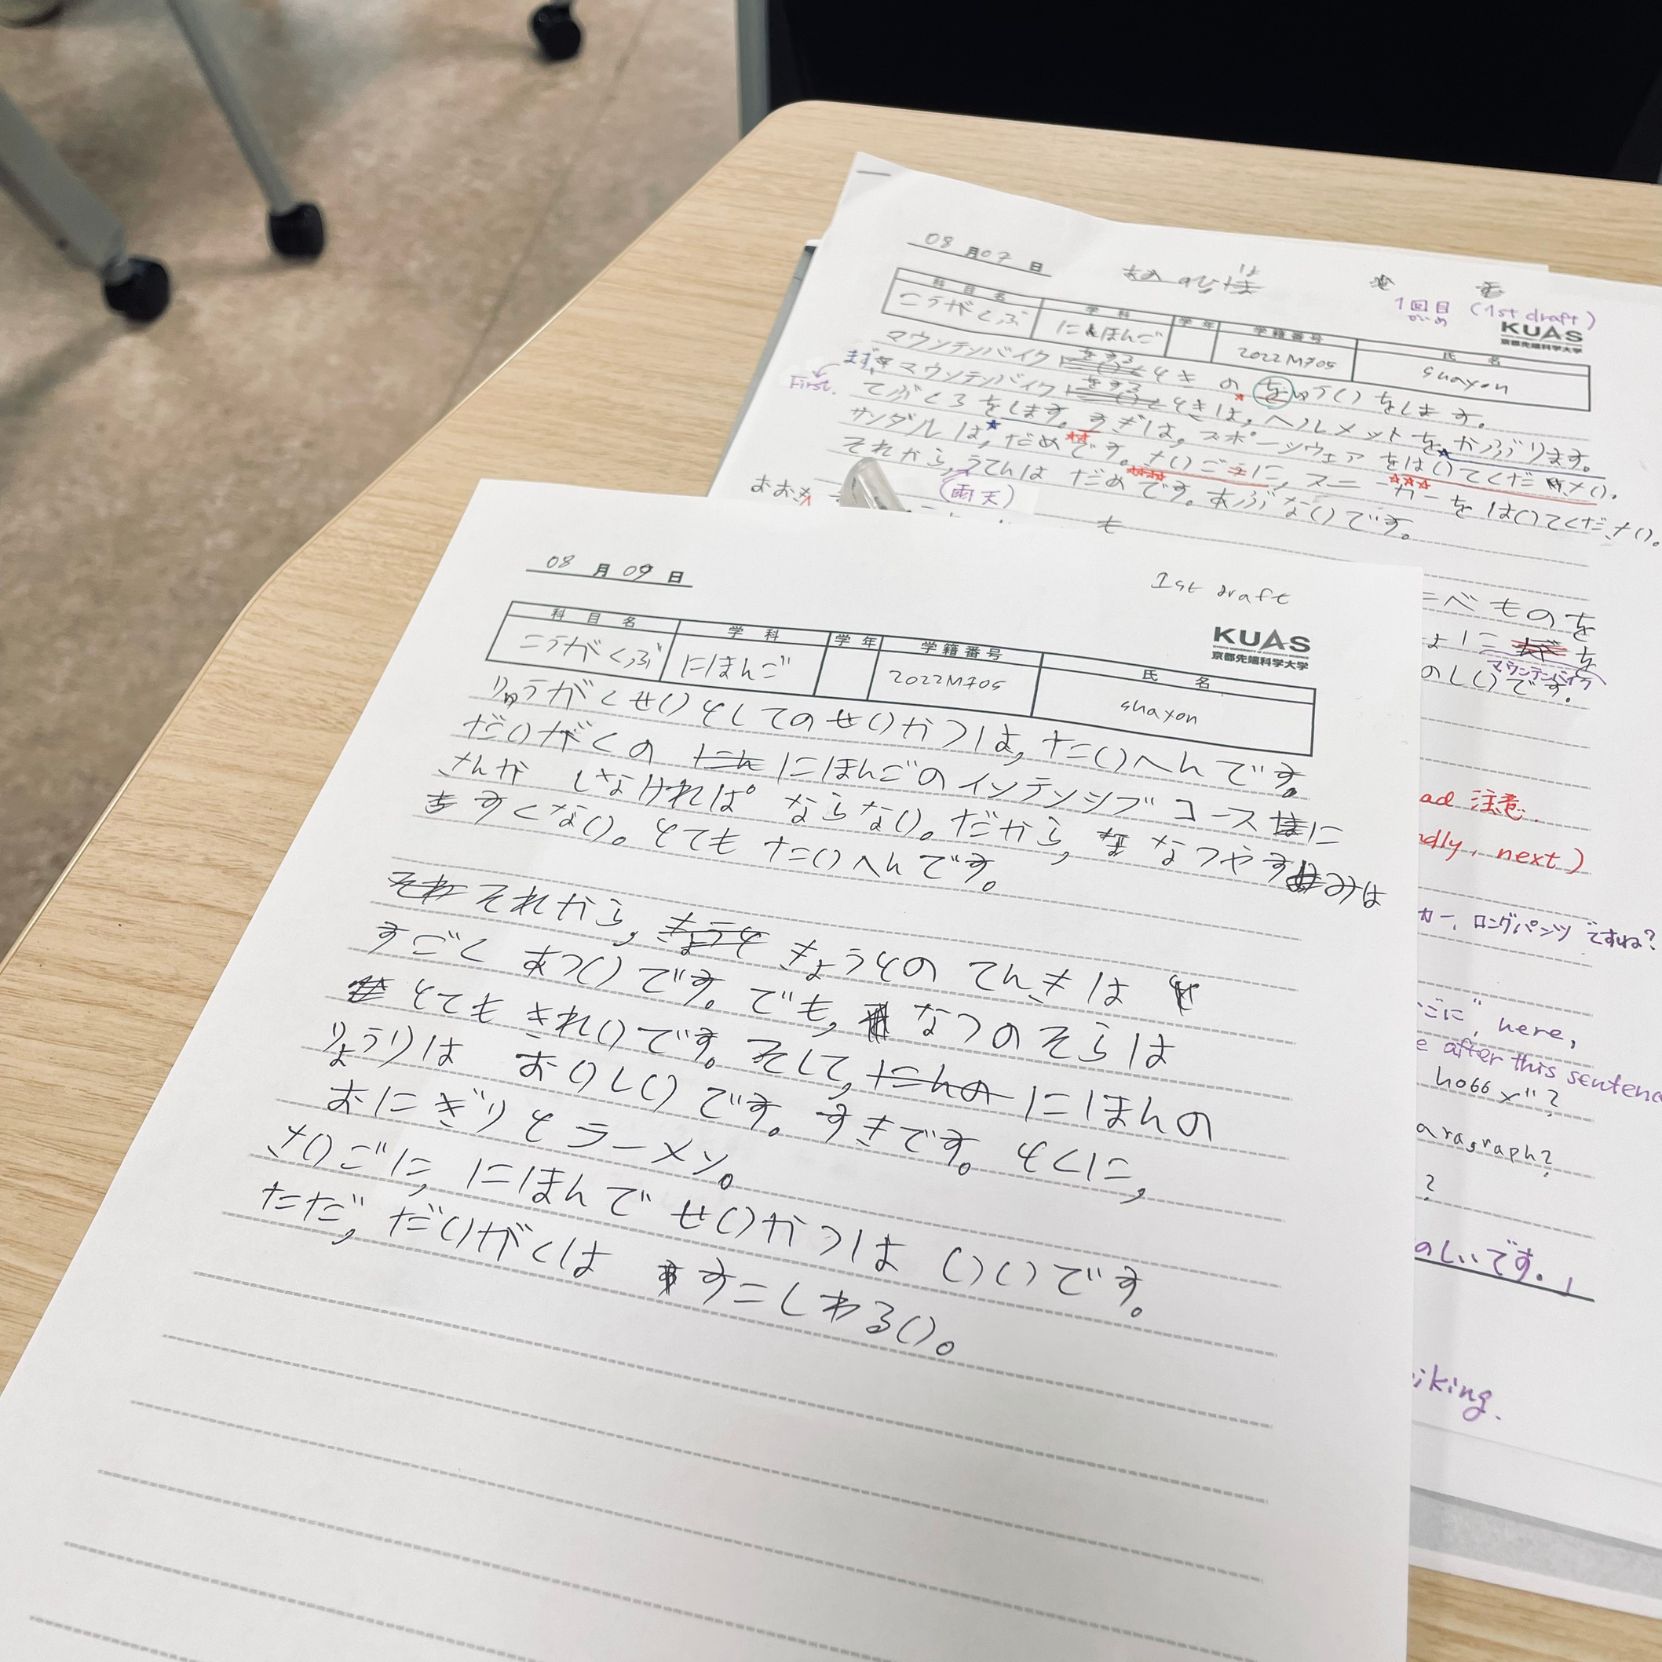 08 月 07 日
1回目 (1st draft)
がいめ
KUAS
京都先端科学大学
科目名 学科 学年 学籍番号 氏名
こうがくぶ にほんご 2022M705 shayon
マウンテンバイク をする ときの じゅうい をします。
First. まず、マウンテンバイク をする ときは、ヘルメットを かぶります。
てぶくろをします。すぎは、スポーツウェアをはいてください。
サンダルは、だめです。さいごに、スニーカーをはいてください。
それから、うてんは だめです。あぶないです。
(雨天)
も
べものを
のしいです。
マウンテンバイク
ad 注意.
dly, next)
カー, ロングパンツ ですね?
こに", here,
e after this sentence
aragraph?
?
のしいです。」
iking.
08 月 09 日
1st draft
KUAS
京都先端科学大学
科目名 学科 学年 学籍番号 氏名
こうがくぶ にほんご 2022M705 shayon
りゅうがくせいとしてのせいかつは, たいへんです。
だいがくの にほんごのインテンシブコースに
さんか しなければ ならない。だから, なつやすみは
すくない。とても たいへんです。
それから, きょうとの てんきは
すごく あついです。でも, なつのそらは
とても きれいです。そして, にほんの
りょうりは おいしいです。すきです。とくに,
おにぎりとラーメン。
さいごに, にほんで せいかつは いいです。
ただ, だいがくは すこしわるい。